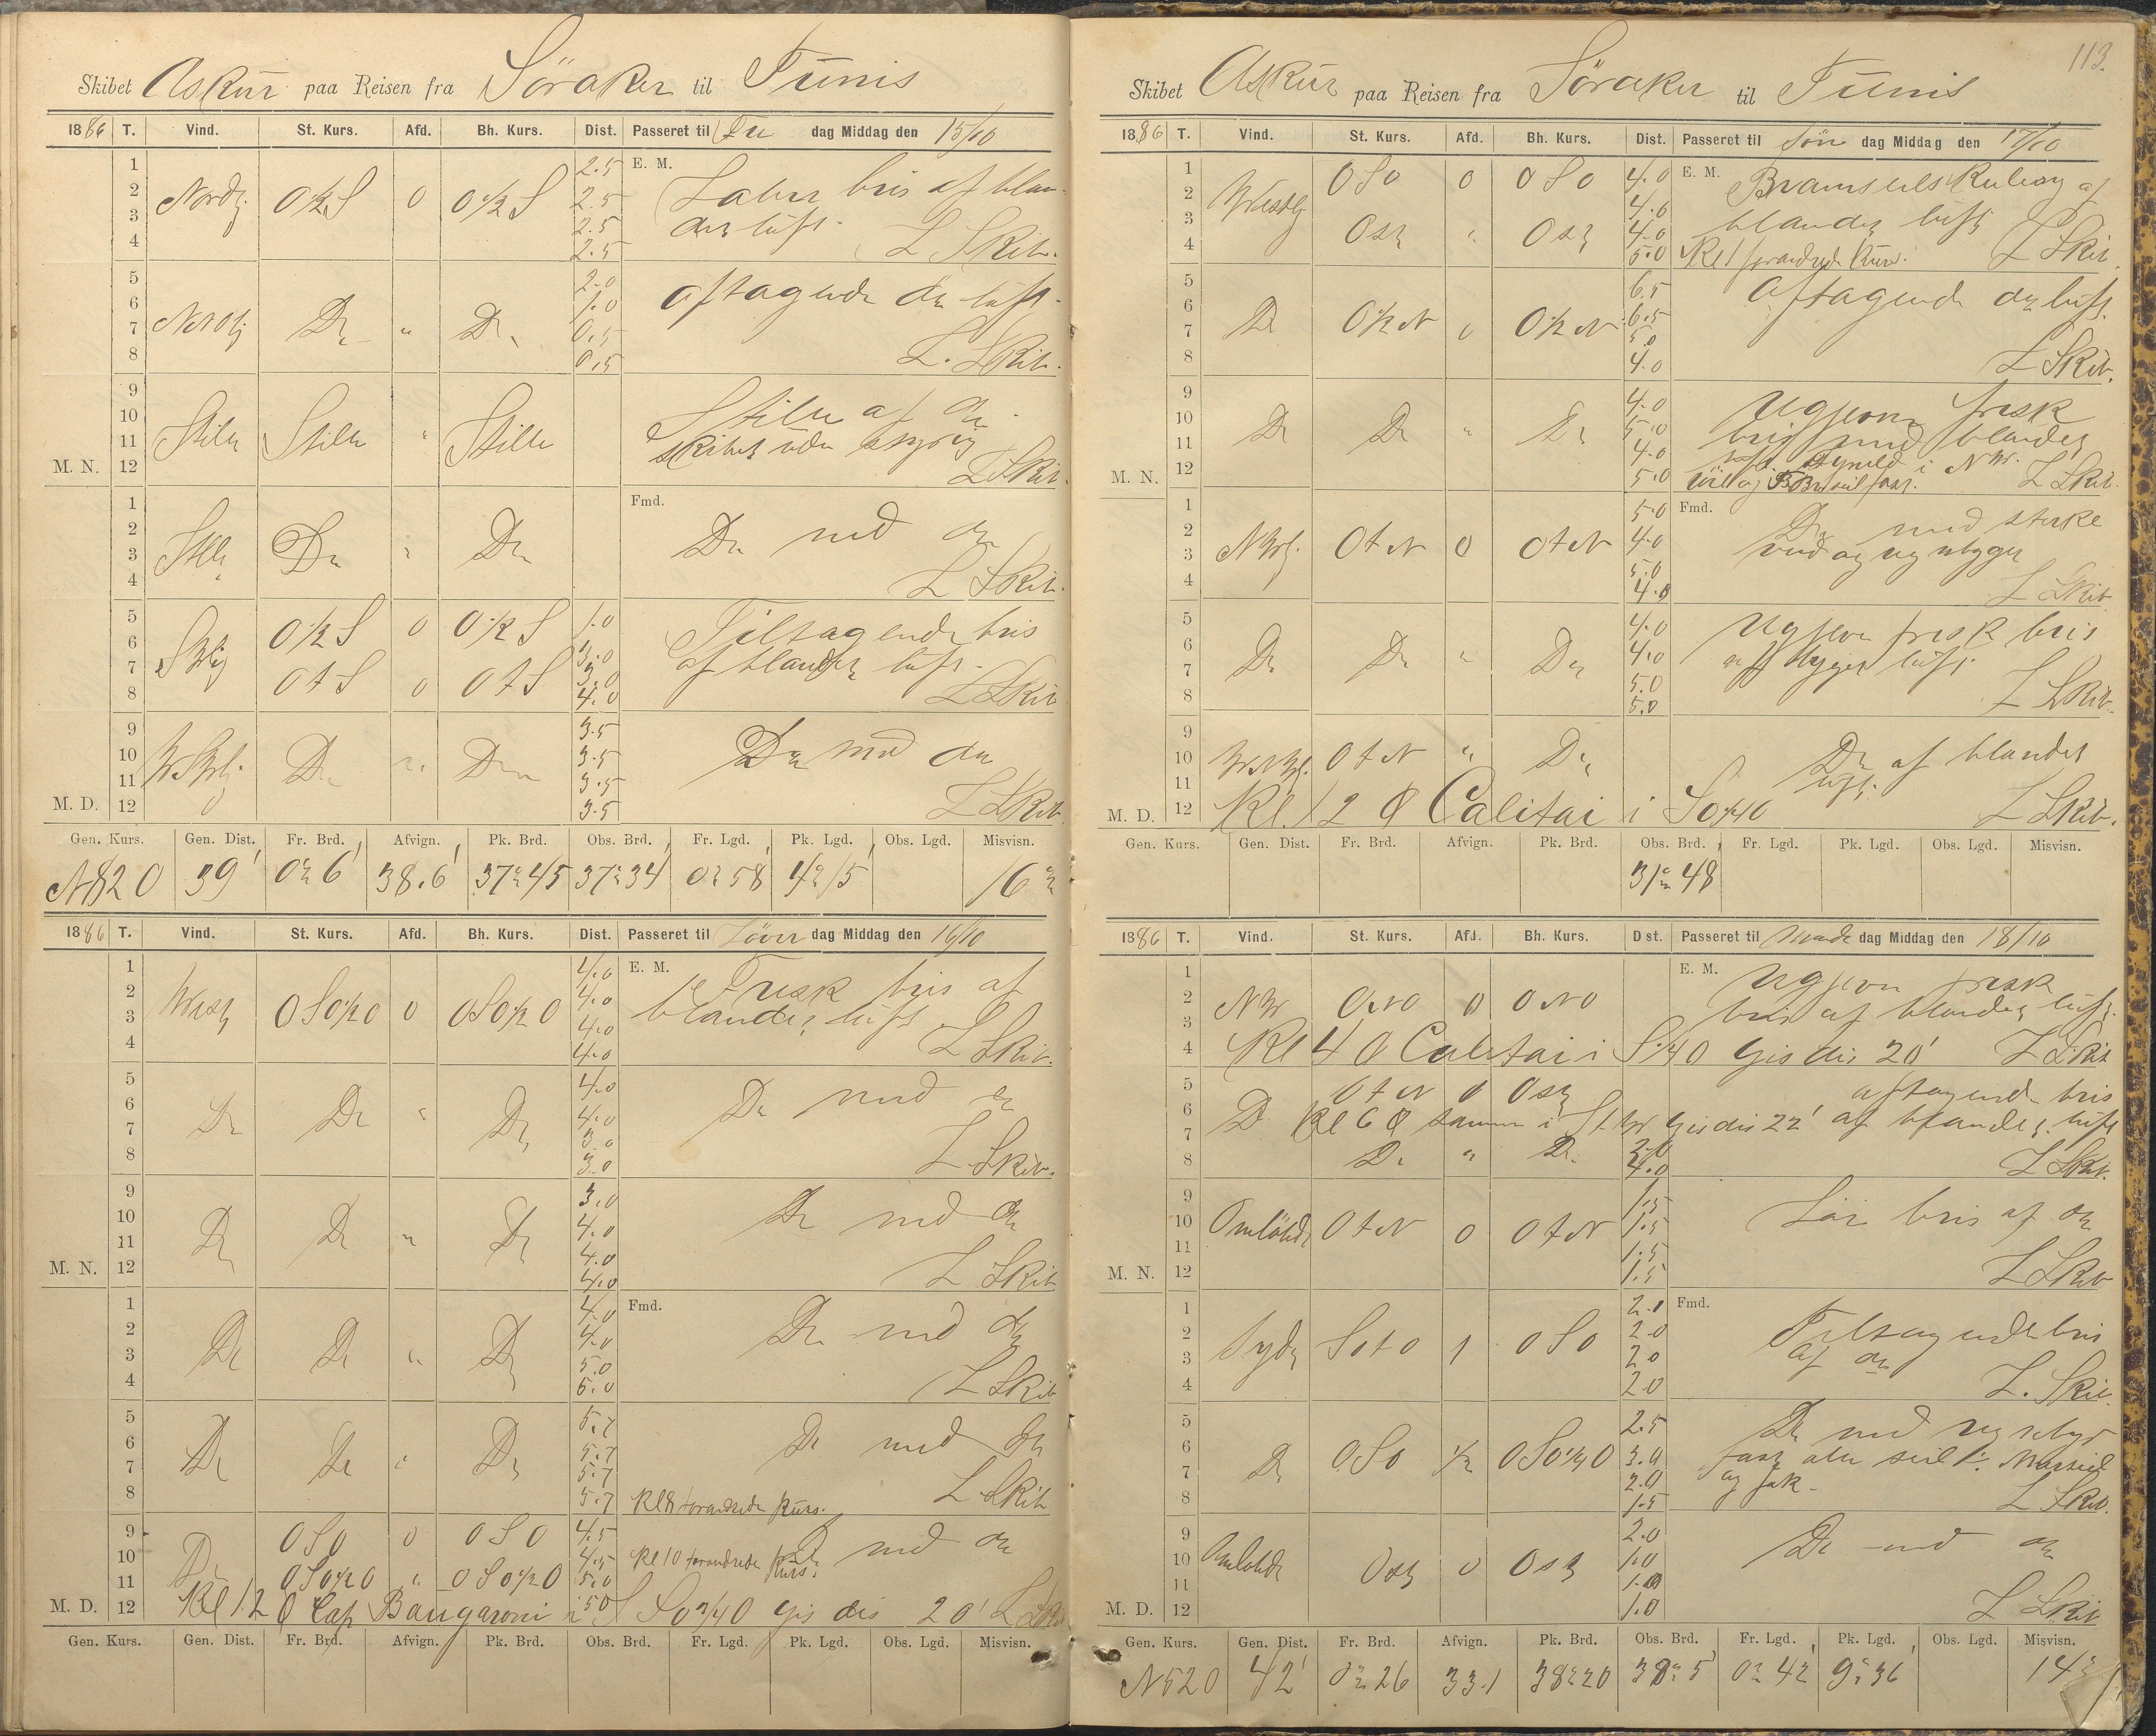 Skibet Askur paa Reisen fra Söraker til Tunis
1886 T. Vind. St. Kurs. Afd. Bh. Kurs. Dist. Passeret til Fre dag Middag den 15/10
1 2.5 E. M. Laber bris af blan-
2 Nordlj O½S 0 O½S 2.5 det luft.
3 2.5
4 2.5 L Skib.
5 2.0 aftagende do luft.
6 1.0
7 NNOlj Do " Do 0.5
8 0.5 L. Skib.
9 Stille af do
10
11 Stille Stille " Stille Skibet uden styring
M. N. 12 L Skib.
1 Fmd.
2 Do med do
3 Stille Do " Do
4 L Skib.
5 O½S 0 O½S 1.0 Tiltagende bris
6 3.0 af blandet luft.
7 SWlj 3.0
8 OtS 0 OtS 4.0 L Skib
9 3.5
10 WSWlj Do " Do 3.5 Do med do
11 3.5
M. D. 12 3.5 L Skib.
Gen. Kurs. Gen. Dist. Fr. Brd. Afvign. Pk. Brd. Obs. Brd. Fr. Lgd. Pk. Lgd. Obs. Lgd. Misvisn.
N82O 39' 0° 6' 38.6' 37° 45 37° 34 0° 58 4° 15' 16°
1886 T. Vind. St. Kurs. Afd. Bh. Kurs. Dist. Passeret til Löver dag Middag den 16/10
1 4.0 E. M. Frisk bris af
2 West OSO½O 0 OSO½O 4.0 blandet luft
3 4.0
4 4.0 L Skib.
5 4.0
6 Do Do " Do 4.0 Do med do
7 3.0
8 3.0 L Skib.
9 3.0
10 Do Do " Do 4.0 Do med do
11 4.0
M. N. 12 4.0 L Skib
1 4.0 Fmd.
2 4.0 Do med do
3 Do Do " Do 5.0
4 5.0 L Skib
5 5.7
6 5.7 Do med do
7 Do Do " Do 5.7
8 5.7 Kl 8 forandrede Kurs. L Skib
9 OSO 0 OSO 4.5 Do med do
10 Do 4.5 Kl 10 forandrede Kurs.
11 OSO½O " OSO½O 5.0
M. D. 12 Kl 12 Cap Baugaroni i 5.0 gis dis 20' L Skib
Gen. Kurs. Gen. Dist. Fr. Brd. Afvign. Pk. Brd. Obs. Brd. Fr. Lgd. Pk. Lgd. Obs. Lgd. Misvisn.
113.
Skibet Askur paa Reisen fra Söraker til Tunis
1886 T. Vind. St. Kurs. Afd. Bh. Kurs. Dist. Passeret til Sön dag Middag den 17/10
1 OSO 0 OSO 4.0 E. M. Bramseils Kuling af
2 Westlj 4.0 blandet luft
3 Ost " Ost 4.0
4 5.0 Kl 1 forandrede Kurs. L Skib.
5 6.5 Aftagende do luft.
6 Do O½N 0 O½N 6.5
7 5.0
8 4.0 L Skib.
9 4.0 Ugjevn frisk
10 Do Do " Do 5.0 bris med blandet
11 4.0 luft i NW.
M. N. 12 5.0 L Skib.
1 5.0 Fmd.
2 NWlj. OtN 0 OtN 4.0 Do med sterke
3 5.0 vind og regnbyger
4 4.0 L Skib
5 4.0 Ugjevn frisk bris
6 Do Do " Do 4.0 af bygget luft
7 5.0
8 5.0 L Skib.
9
10 WNWlj. OtN " Do Do af blandet
11 luft.
M. D. 12 Kl. 12 Calitai i SO¾O L Skib.
Gen. Kurs. Gen. Dist. Fr. Brd. Afvign. Pk. Brd. Obs. Brd. Fr. Lgd. Pk. Lgd. Obs. Lgd. Misvisn.
31° 48
1886 T. Vind. St. Kurs. Afd. Bh. Kurs. Dist. Passeret til Man dag Middag den 18/10
1 E. M. Ugjevn frisk
2 NW ONO 0 ONO bris af blandet luft.
3
4 Kl 4 Calitai i gis dis 20' L Skib
5 OtN 0 Ost aftagende bris
6 Do Kl 6 samme i gis dis 22' af blandet luft
7
8 Do " Do 4.0 L Skib.
9 1.5
10 Omlöbde OtN 0 OtN 1.5 Lör bris af do
11 1.5
M. N. 12 1.5 L Skib
1 2.0 Fmd.
2 Sydlj SOtO 1 OSO 2.0 Tiltagende bris
3 2.0 af do
4 2.0 L. Skib.
5 2.5 Do med regnbyer
6 Do OSO ½ OSO½O 3.0 fast alle seil
7 2.0 og fok.
8 1.5 L Skib.
9 2.0
10 Omlöbde Ost 0 Ost 1.0 Do med do
11 1.0
M. D. 12 1.0 L Skib
Gen. Kurs. Gen. Dist. Fr. Brd. Afvign. Pk. Brd. Obs. Brd. Fr. Lgd. Pk. Lgd. Obs. Lgd. Misvisn.
N52O 42' 0° 26 33.1 38° 20 38° 5' 0° 42 9° 36' 14°